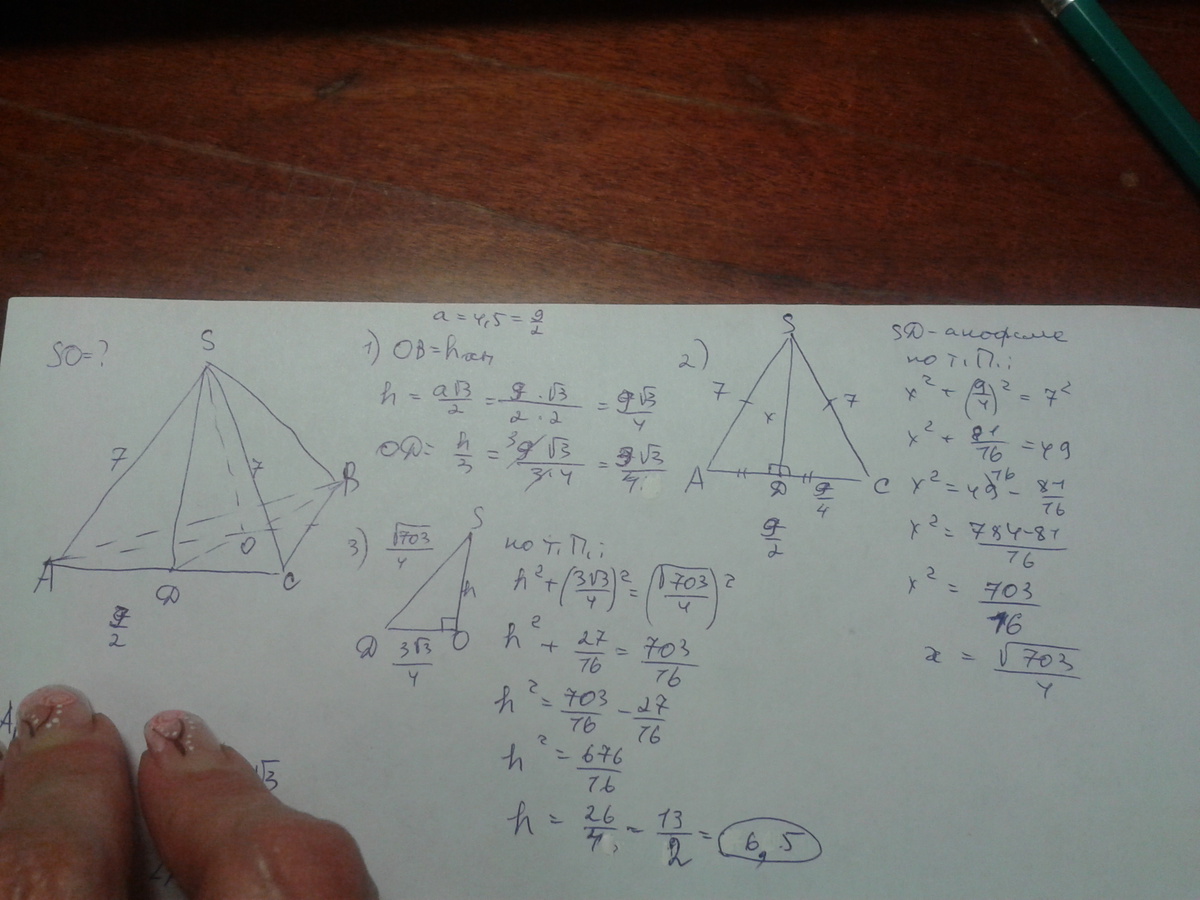 SO=?
S
7
7
A
D
C
B
O
9/2
a = 4,5 = 9/2
1) OB = h
h = a√3/2 = 9·√3/2·2 = 9√3/4
OD = h/3 = 9√3/3·4 = 3√3/4
2)
S
7
x
7
A
D
9/4
C
9/2
SD - апофема
по т.П.:
x² + (9/4)² = 7²
x² + 81/16 = 49
x² = 49 - 81/16
x² = 784-81/16
x² = 703/16
x = √703/4
3)
√703/4
S
h
D
3√3/4
O
по т.П.:
h² + (3√3/4)² = (√703/4)²
h² + 27/16 = 703/16
h² = 703/16 - 27/16
h² = 676/16
h = 26/4 = 13/2 = 6,5
√3